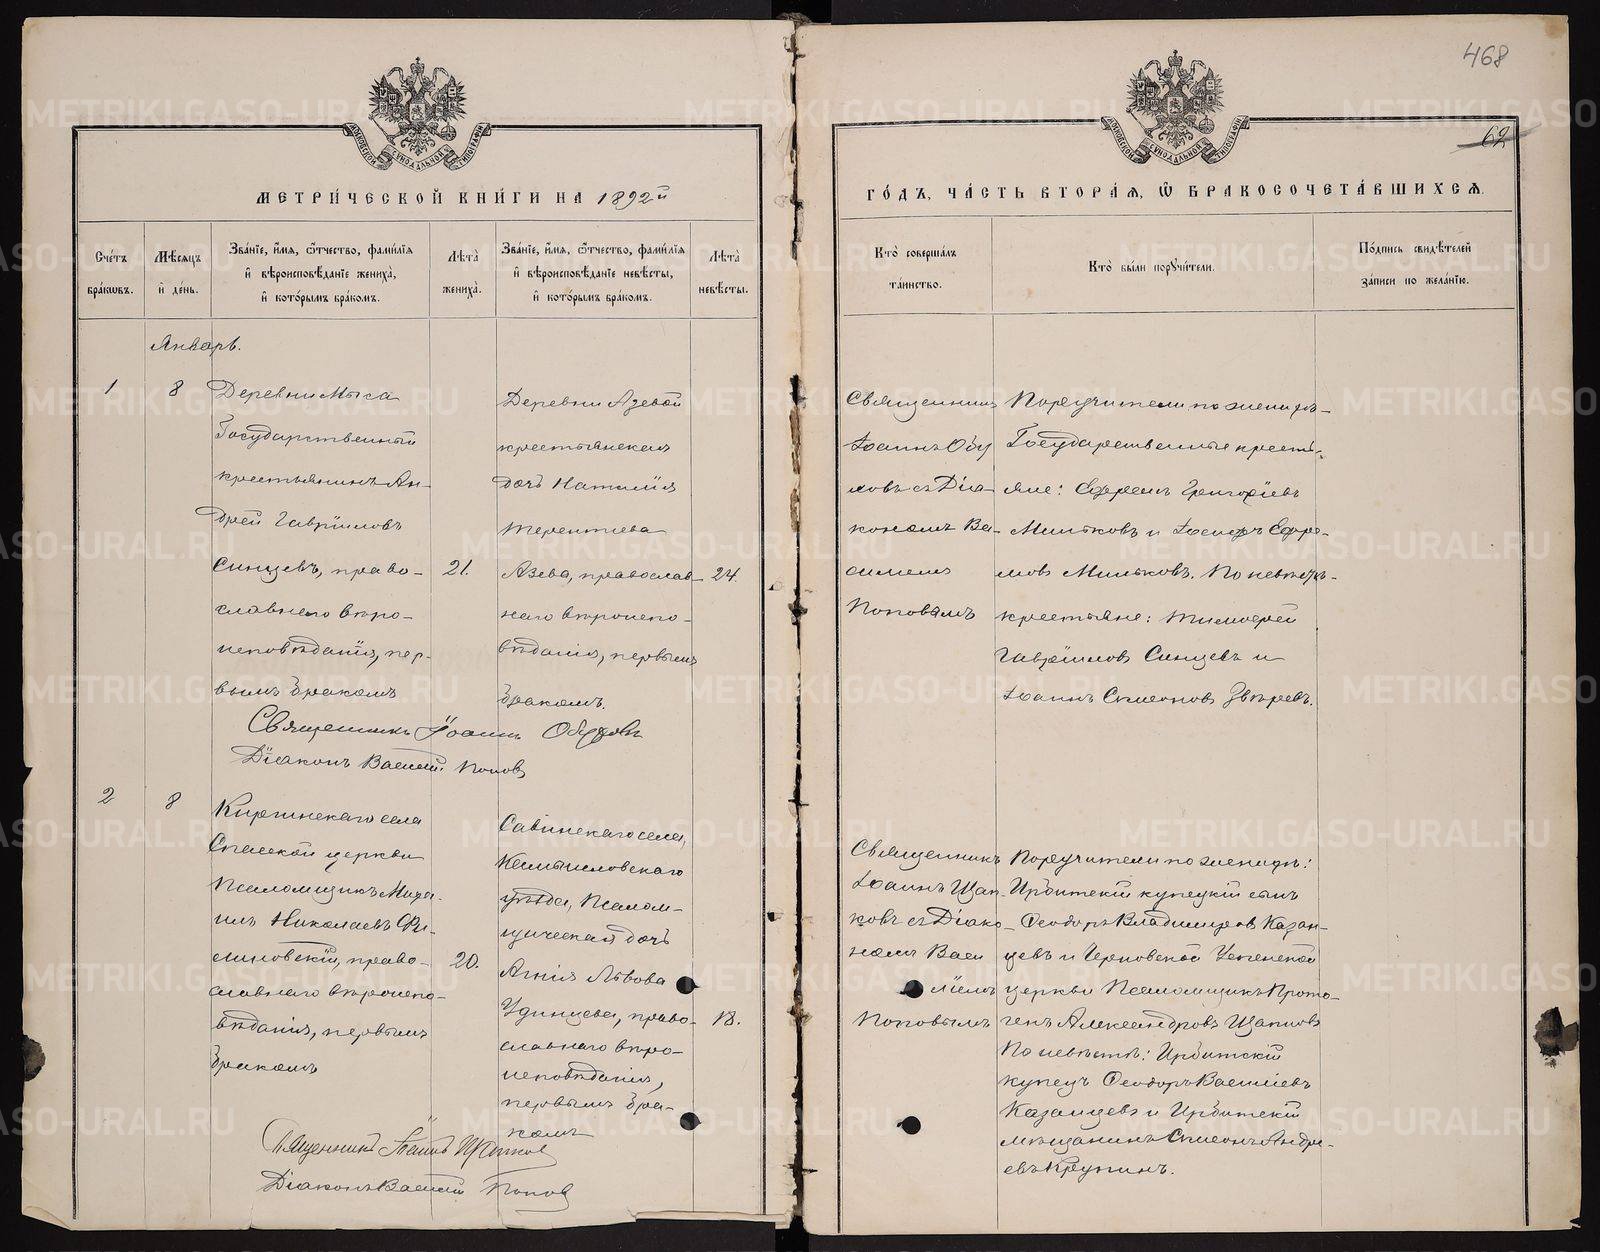 468
62
МЕТРИ́ЧЕСКОЙ КНИ́ГИ НА 1892й
ГО́ДЪ, ЧА́СТЬ ВТОРА́Я, Ѡ БРАКОСОЧЕТА́ВШИХСЯ.
МОСКОВСКОЙ СѴНОДАЛЬНОЙ ТИПОГРАФІИ
МОСКОВСКОЙ СѴНОДАЛЬНОЙ ТИПОГРАФІИ
Сче́тъ бра́кѡвъ.
Мѣ́сяцъ и҆ де́нь.
Зва́нїе, и҆́мя, ѻ҆́тчество, фами́лїя и҆ вѣроисповѣ́данїе жениха̀, и҆ кото́рымъ бра́комъ.
Лѣта̀ жениха̀.
Зва́нїе, и҆́мя, ѻ҆́тчество, фами́лїя и҆ вѣроисповѣ́данїе невѣ́сты, и҆ кото́рымъ бра́комъ.
Лѣта̀ невѣ́сты.
Кто̀ соверша́лъ та́инство.
Кто̀ бы́ли порꙋчи́тели.
По́дпись свидѣ́телей за́писи по жела́нїю.
Январь.
1
8
Деревни Мыса
Государственный
крестьянинъ Ан-
дрей Гавріиловъ
Синцевъ, право-
славнаго вѣро-
исповѣданія, пер-
вымъ бракомъ
21.
Деревни Азевой
крестьянская
дочь Наталія
Терентіева
Азева, православ-
наго вѣроиспо-
вѣданія, первымъ
бракомъ.
24.
Священникъ
Іоаннъ Обу
ховъ съ Діа
кономъ Ва-
силіемъ
Поповымъ
Поручители по женихѣ-
Государственные кресть-
яне: Ефремъ Григоріевъ
Мильковъ и Іосифъ Ефре-
мовъ Мильковъ. По невѣстѣ-
крестьяне: Тимофей
Гавріиловъ Синцевъ и
Іоаннъ Симеоновъ Звѣревъ.
Священникъ Іоаннъ Обуховъ
Діаконъ Василій Поповъ
2
8
Киргинскаго села
Спасской церкви
Псаломщикъ Миха-
илъ Николаевъ Фи-
липовскій, право-
славнаго вѣроиспо-
вѣданія, первымъ
бракомъ
20.
Савинскаго села,
Камышловскаго
уѣзда, Псалом-
щическая дочь
Агнія Львова
Удинцева, право-
славнаго вѣро-
исповѣданія,
первымъ бра-
комъ
18.
Священникъ
Іоаннъ Щап-
ковъ съ Діако-
номъ Васи
ліемъ
Поповымъ
Поручители по женихѣ:
Ирбитскій купецкій сынъ
Феодоръ Владиміровъ Казан-
цевъ и Церковской Успенской
церкви Псаломщикъ Прото-
генъ Александровъ Щаповъ
По невѣстѣ: Ирбитскій
купецъ Феодоръ Васильевъ
Казанцевъ и Ирбитскій
мѣщанинъ Симеонъ Андре-
евъ Крупинъ.
Священникъ Іоаннъ Щапковъ
Діаконъ Василій Поповъ
METRIKI.GASO-URAL.RU